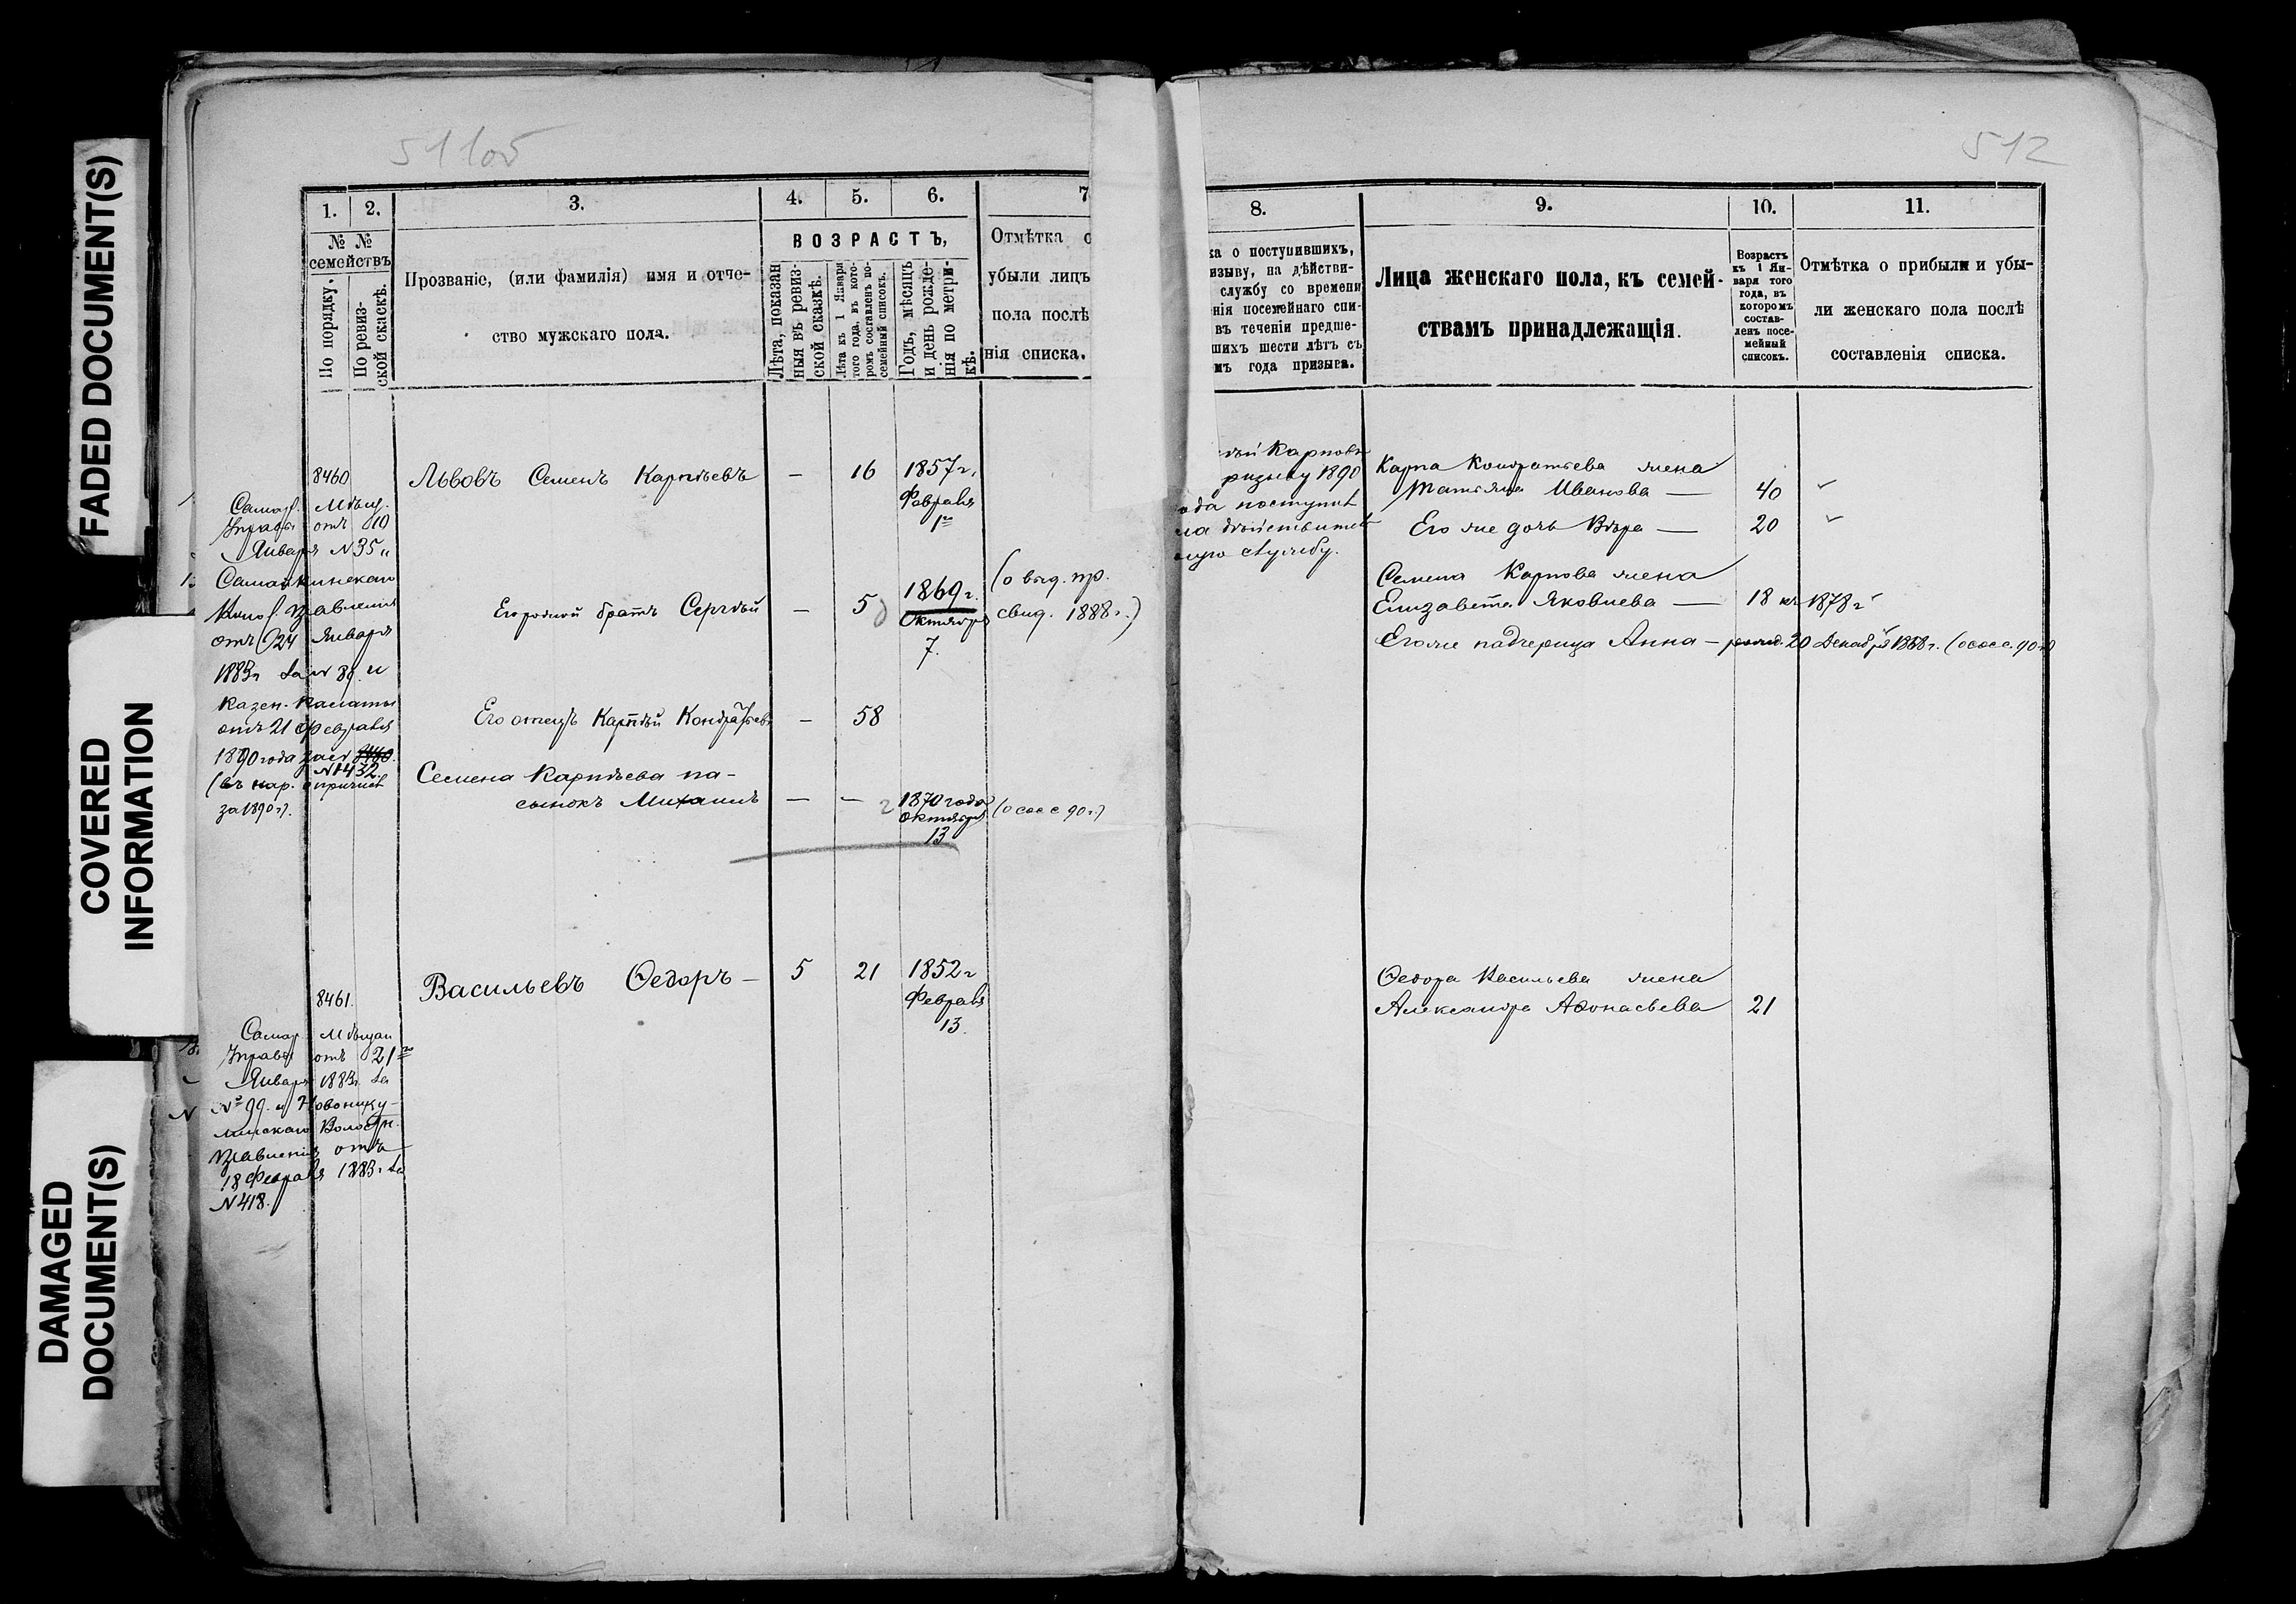 FADED DOCUMENT(S)
COVERED
INFORMATION
DAMAGED
DOCUMENT(S)
511об
1. 2. 3. 4. 5. 6. 7
№ №
семействъ
По порядку.
По ревиз-
ской скаскѣ.
Прозваніе, (или фамилія) имя и отче-
ство мужскаго пола.
ВОЗРАСТЪ,
Лѣта, показан
ныя въ ревиз-
ской сказкѣ.
Лѣта къ 1 Января
того года, въ кото-
ромъ составленъ по-
семейный списокъ.
Годъ, мѣсяцъ
и день рожде-
нія по метри-
кѣ.
Отмѣтка о
убыли лицъ
пола послѣ
нія списка.
8460
Самар. Мѣщ.
Управы отъ 10
Января №35 и
Управленія
отъ 24 Января
1883г за № 38 и
Казен. Палаты
отъ 21 Февраля
1890 года за №
№1432
(въ кар. о причисл
за 1890 г).
Львовъ Семенъ Карпѣевъ — 16 1857 г.
Февраля
1го
Его родной братъ Сергѣй — 5 1869 г.
Октября
7.
(о выд. пр.
свид. 1888 г.)
Его отецъ Карпѣй Кондратьевъ — 58
Семена Карпѣева па-
сынокъ Михаилъ — — 1870 года
Октября
13
(о сос с 90 г)
8461.
Самар. Мѣщан
Управы отъ 21го
Января 1883г. за
№ 99. и Новонику-
линскаго Волостн.
Правленія отъ
18 Февраля 1883 г за
№ 418.
Васильевъ Ѳедоръ — 5 21 1852 г
Февраля
13.
512
8. 9. 10. 11.
ка о поступившихъ,
изыву, на дѣйстви-
службу со времени
нія посемейнаго спи-
въ теченіи предше-
шихъ шести лѣтъ съ
мъ года призыва.
Лица женскаго пола, къ семей-
ствамъ принадлежащія.
Возрастъ
къ 1 Ян-
варя того
года, въ
которомъ
состав-
ленъ посе-
мейный
списокъ.
Отмѣтка о прибыли и убы-
ли женскаго пола послѣ
составленія списка.
ѣй Карповъ
ризыву 1890
ода поступилъ
на дѣйствител
ную службу.
Карпа Кондратьева жена
Татьяна Иванова — 40
Его же дочь Вѣра — 20
Семена Карпова жена
Елизавета Яковлева — 18 къ 1878 г
Его же падчерица Анна — рожд. 20 Декабря 1868 г. (о сос с. 90 г)
Ѳедора Васильева жена
Александра Аѳонасьева 21